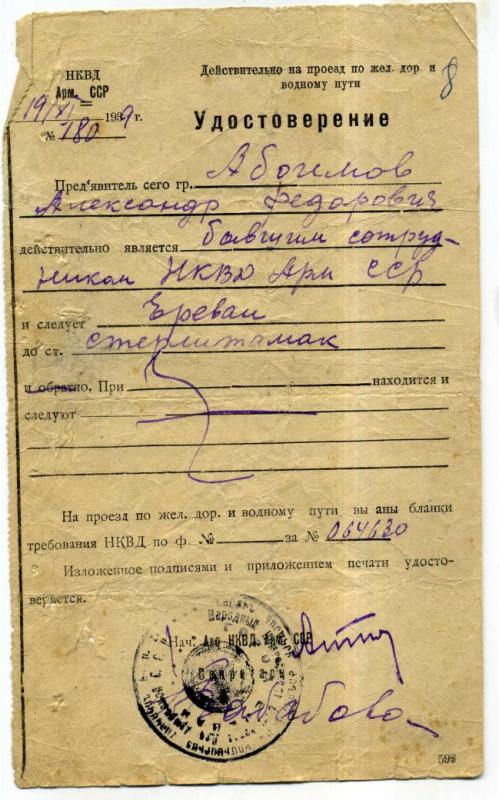 НКВД
Арм. ССР
19/XI 1939 г.
№ 180
Действительно на проезд по жел. дор. и
водному пути
8
Удостоверение
Пред'явитель сего гр. Абогимов
Александр Федорович
действительно является бывшим сотруд-
ником НКВД Арм ССР
и следует Ереван
до ст. Стерлитамак
и обратно. При находится и
следуют
На проезд по жел. дор. и водному пути вы аны бланки
требования НКВД по ф. № за № 064630
Изложенное подписями и приложением печати удосто-
веряется.
Нач. Ахо НКВД Арм. ССР
Секретарь
598